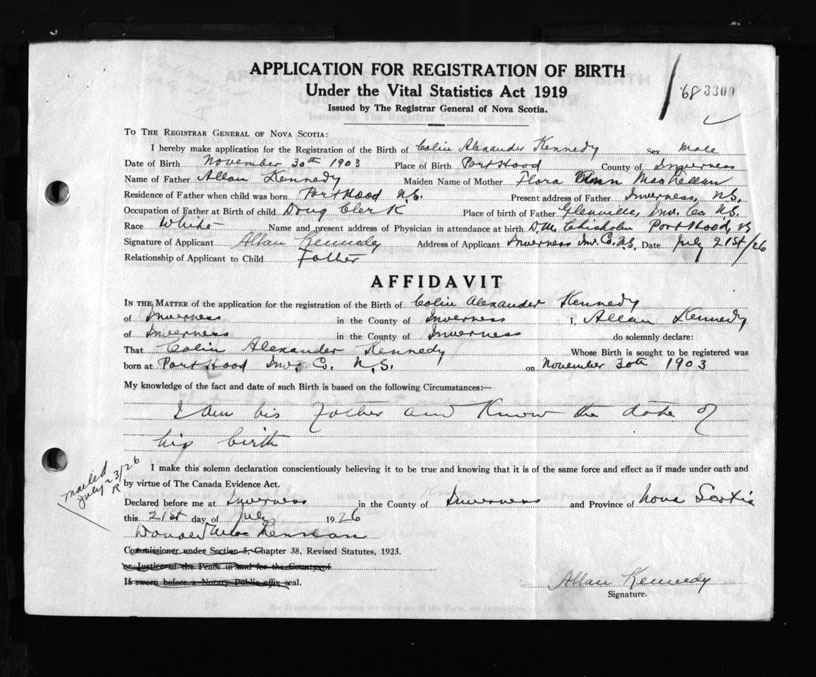 APPLICATION FOR REGISTRATION OF BIRTH
Under the Vital Statistics Act 1919
Issued by The Registrar General of Nova Scotia.
68 3300
To The Registrar General of Nova Scotia:
I hereby make application for the Registration of the Birth of Colin Alexander Kennedy Sex Male
Date of Birth November 30th 1903 Place of Birth Port Hood County of Inverness
Name of Father Allan Kennedy Maiden Name of Mother Flora Ann MacLellan
Residence of Father when child was born Port Hood N.S. Present address of Father Inverness, N.S.
Occupation of Father at Birth of child Drug Clerk Place of birth of Father Glenville, Inv. Co N.S.
Race White Name and present address of Physician in attendance at birth D.M. Chisholm Port Hood, N.S
Signature of Applicant Allan Kennedy Address of Applicant Inverness Inv. Co. N.S. Date July 21st/26
Relationship of Applicant to Child Father
AFFIDAVIT
In the Matter of the application for the registration of the Birth of Colin Alexander Kennedy
of Inverness in the County of Inverness I, Allan Kennedy
of Inverness in the County of Inverness do solemnly declare:
That Colin Alexander Kennedy Whose Birth is sought to be registered was
born at Port Hood Inv. Co. N.S. on November 30th 1903
My knowledge of the fact and date of such Birth is based on the following Circumstances:—
I am his Father and Know the date of
his birth
I make this solemn declaration conscientiously believing it to be true and knowing that it is of the same force and effect as if made under oath and
by virtue of The Canada Evidence Act.
Mailed
July 23/26
R
Declared before me at Inverness in the County of Inverness and Province of Nova Scotia
this 21st day of July 1926
Donald Mac Lennan
Commissioner under Section 5, Chapter 38, Revised Statutes, 1923.
or Justice of the Peace in and for the County of
If sworn before a Notary Public affix seal.
Allan Kennedy
Signature.